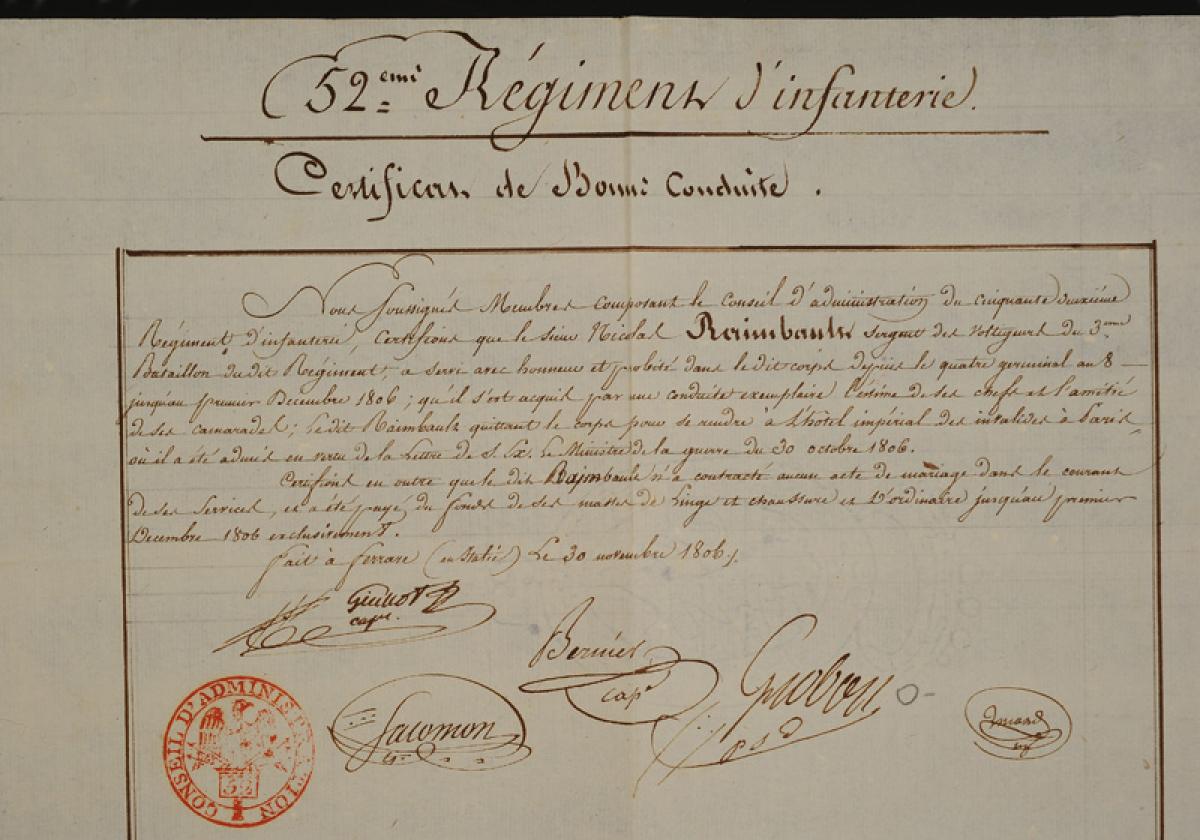 52eme Régiment d'infanterie.
Certificat de Bonne Conduite.
Nous Soussignés Membres composant le Conseil d'administration du cinquante deuxième
Régiment d'infanterie, Certifions que le sieur Nicolas Raimbault Sergent des Voltigeurs du 3eme
Bataillon du dit Régiment, a servi avec honneur et probité dans le dit corps depuis le quatre germinal an 8
jusqu'au premier Decembre 1806; qu'il s'est acquis par une conduite exemplaire l'estime de ses chefs et l'amitié
de ses camarades; Le dit Raimbault quittant le corps pour se rendre à L'hôtel impérial des invalides à Paris
où il a été admis en vertu de la Lettre de S. Ex. Le Ministre de la guerre du 30 octobre 1806.
Certifions en outre que le dit Raimbault n'a contracté aucun acte de mariage dans le courant
de ses Services, et a été payé du fonds de ses masses de Linge et chaussure et D'ordinaire jusqu'au premier
Decembre 1806 exclusivement.
fait à ferrare (en Italie) Le 30 novembre 1806.
Guillot
capne.
Bernié
cape
Grobon
Sacomon
CONSEIL D'ADMINISTRATION
52